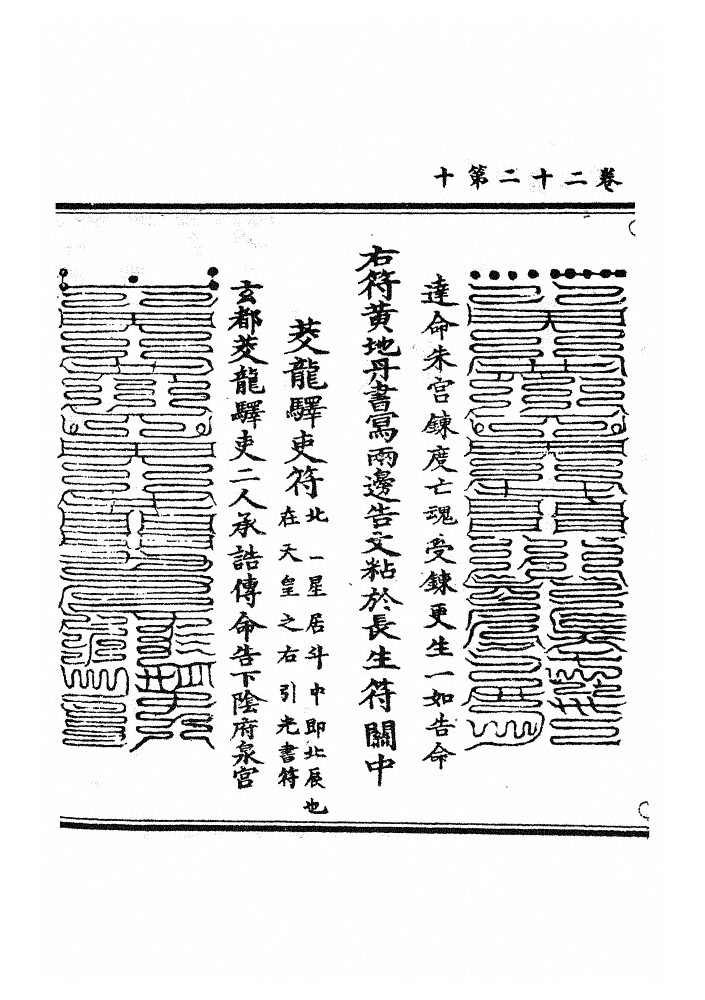 卷二十二第十
達命朱宮鍊度亡魂受鍊更生一如告命
右符黃地丹書寫兩邊告文粘於長生符關中
茭龍驛吏符
北一星居斗中即北辰也
在天皇之右引光書符
玄都茭龍驛吏二人承誥傳命告下陰府泉宮